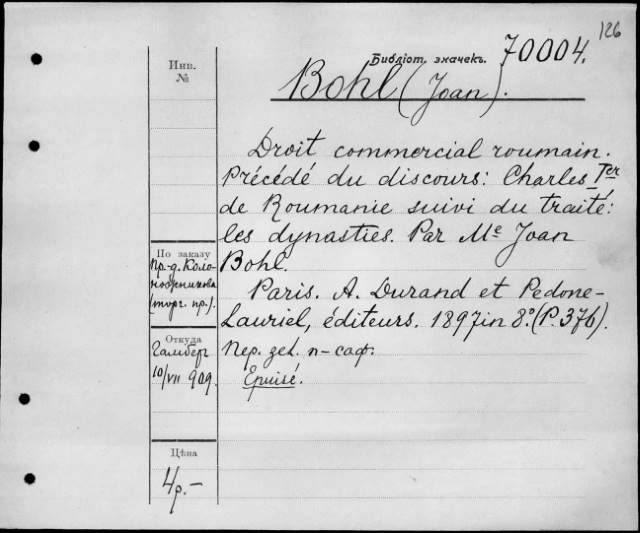 126
Библіот. значекъ. 70004.
Инв.
№
Bohl (Joan).
Droit commercial roumain.
Précédé du discours: Charles Ier
de Roumanie suivi du traité:
les dynasties. Par Me Joan
Bohl.
Paris. A. Durand et Pedone-
Lauriel, éditeurs. 1897 in 8.° (P. 376).
Пер. зел. п-саф.
Epuisé.
По заказу
Пр-д.
(торг. пр.).
Откуда
Гамберг
10/VII 909.
Цѣна
4р.-